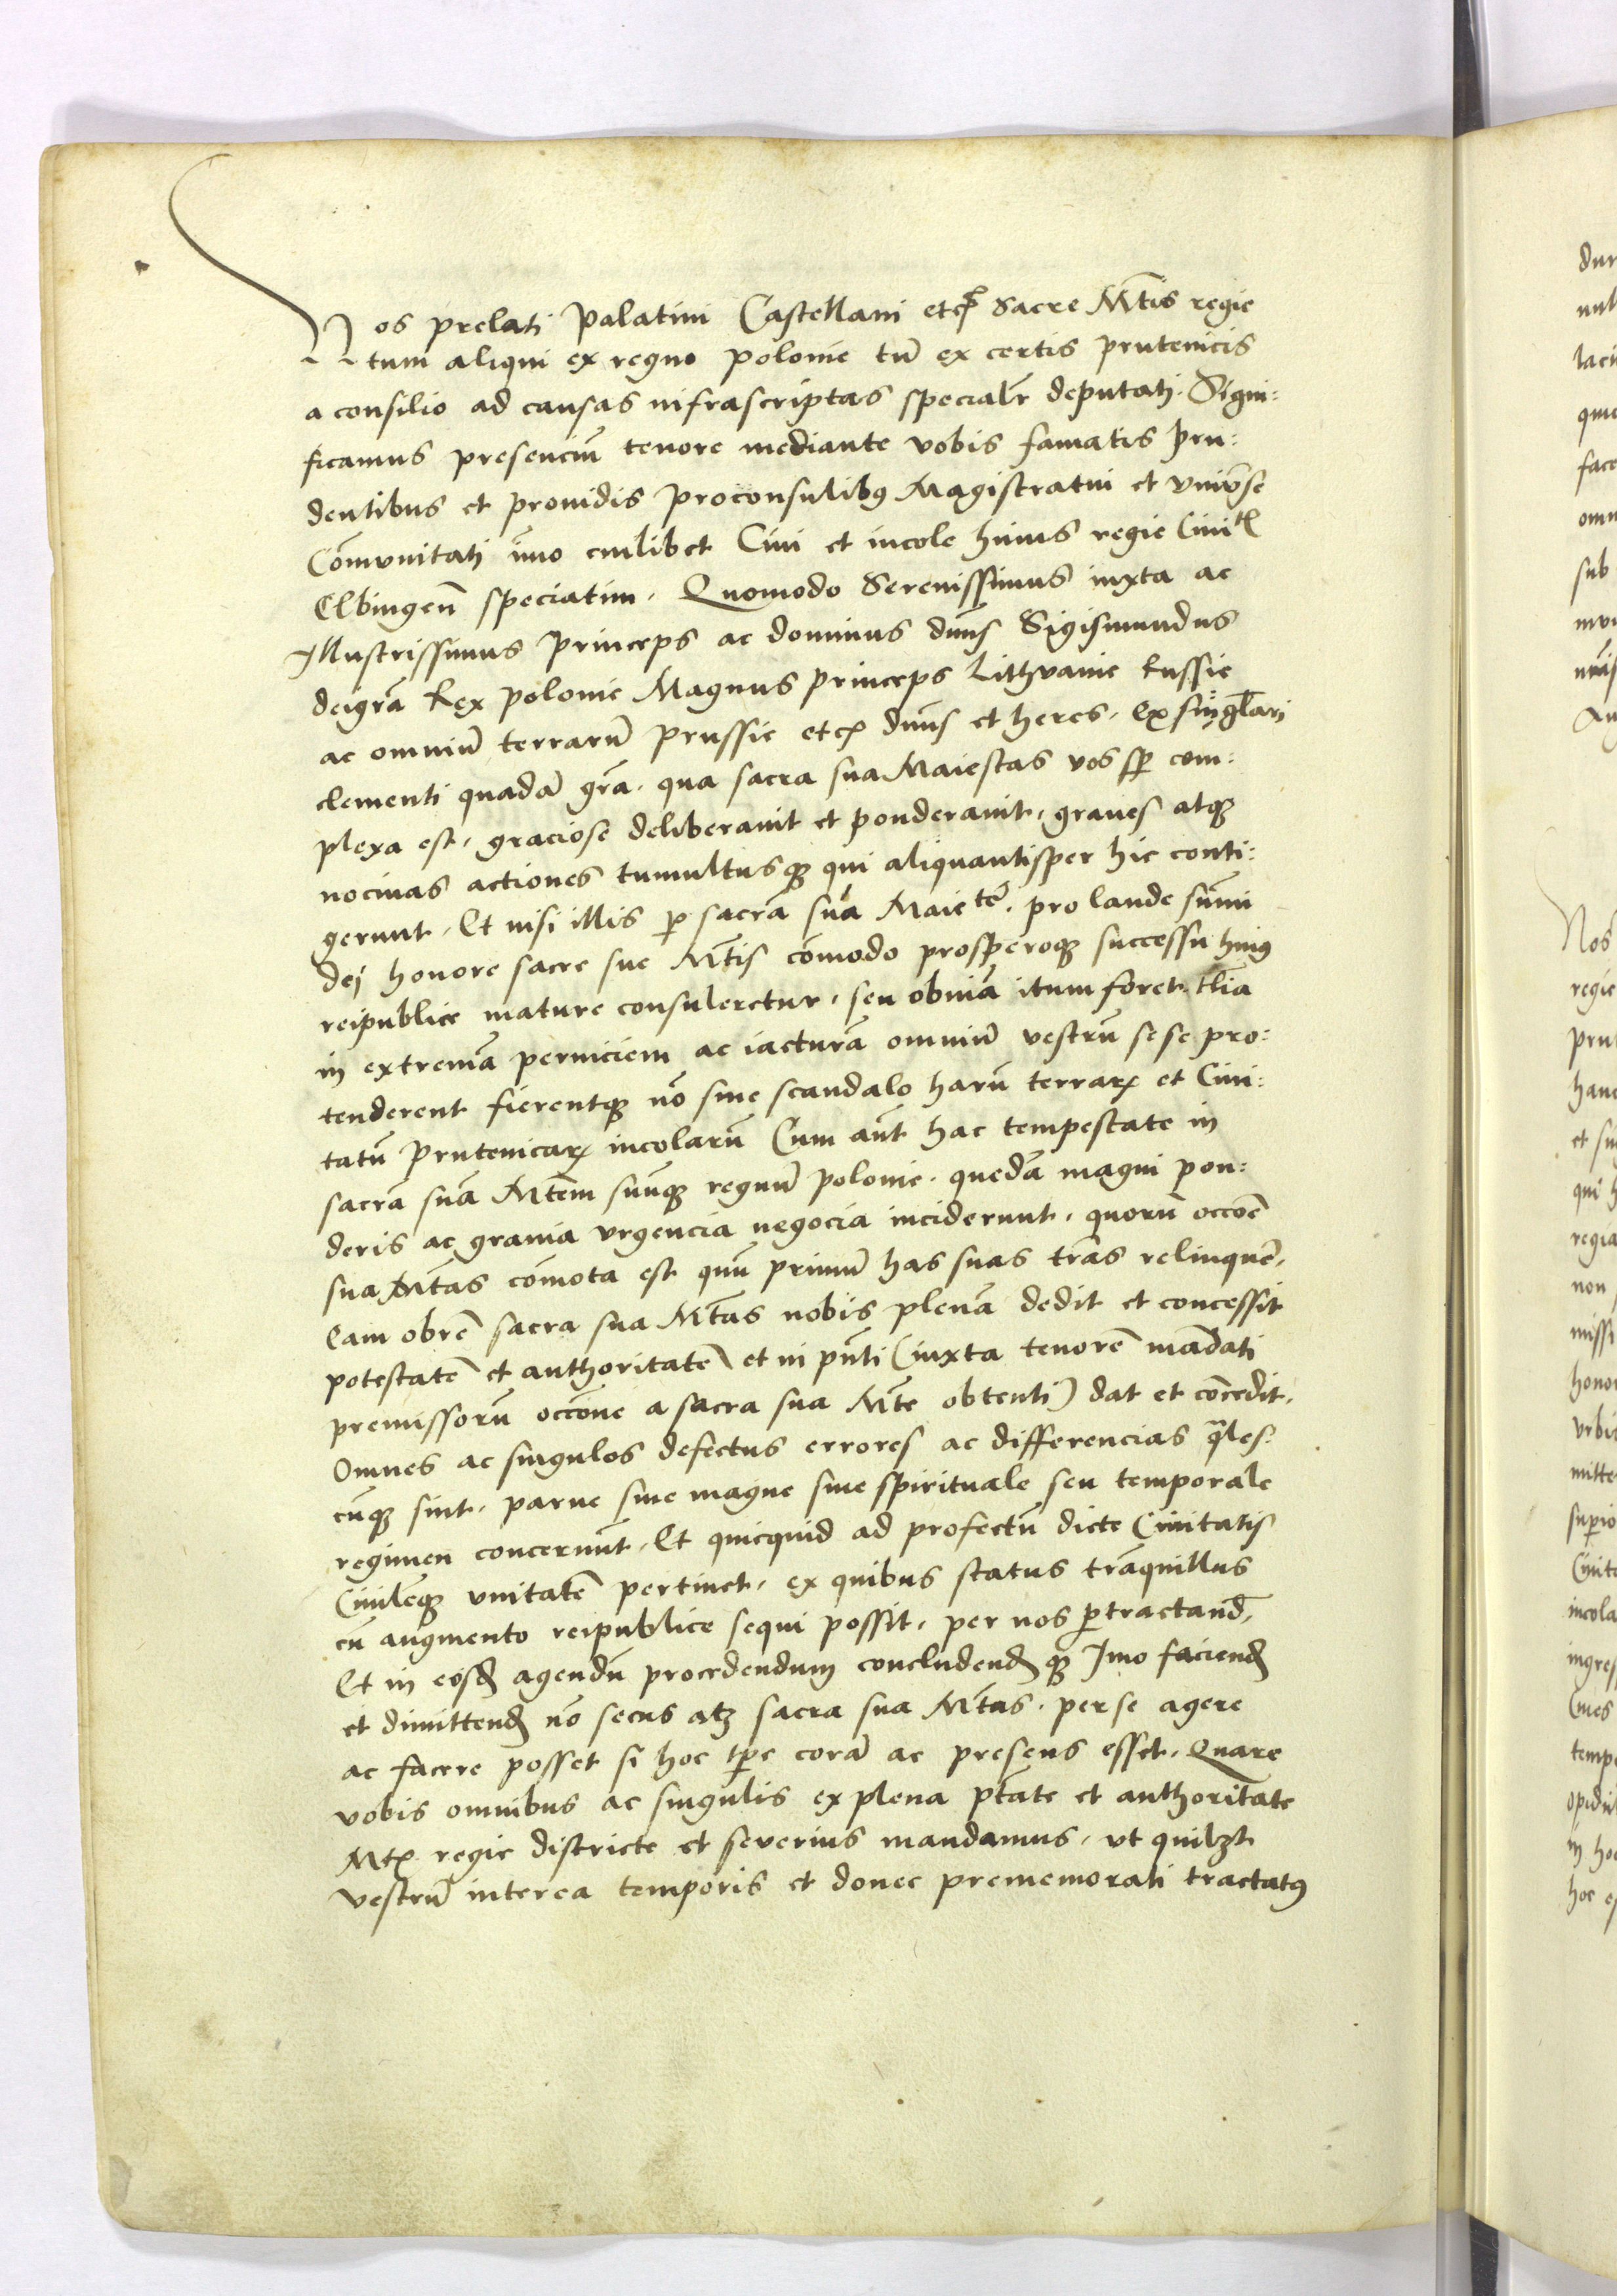 Nos prelati palatini Castellani etc̃ sacre Mt̃is regie
tum aliqui ex regno polonie tũ ex certis prutenicis
a consilio ad causas infrascriptas specialr̃ deputati. Signi:
ficamus presenciũ tenore mediante vobis famatis pru:
dentibus et prouidis proconsulibꝯ Magistratui et vniũse
Com̃vnitati imo cuilibet Ciui et incole huius regie Ciuitꝭ
Elbingen̄ speciatim. Quomodo Serenissimus iuxta ac
Illustrissimus princeps ac dominus dn̄s Sigismundus
dei grã Rex polonie Magnus princeps Lithvanie Russie
ac omniũ terrarũ prussie etcꝭ dn̄s et heres. ex singl̄ari
clementi quadã grã. qua sacra sua Maiestas vos sꝑ com:
plexa est. graciose deliberauit et ponderauit. graues atqꝫ
nociuas actiones tumultusqꝫ qui aliquantisper hic conti:
gerunt. Et nisi illis ꝑ sacrã suã Maietẽ. pro laude sum̃i
dej honore sacre sue Mt̃is com̃odo prosperoqꝫ successu huiꝯ
reipublice mature consuleretur. seu obuiã itum foret. tl̃ia
in extremã perniciem ac iacturã omniũ vestrũ sese pro:
tenderent fierentqꝫ nõ sine scandalo harũ terrarꝝ et Ciui:
tatũ prutenicarꝝ incolarũ Cum aũt hac tempestate in
sacrã suã Mt̃em suũqꝫ regnũ polonie. quedã magni pon:
deris ac grauia vrgencia negocia inciderunt. quorũ occoẽ
sua Mt̃as com̃ota est quũ primũ has suas tr̃as relinquẽ.
Eam obrẽ sacra sua Mt̃as nobis plenã dedit et concessit
potestatẽ et authoritatẽ et in pñti (iuxta tenorẽ mãdati
premissorũ occõne a sacra sua Mt̃e obtenti) dat et cõcedit.
Omnes ac singulos defectus errores ac differencias q̃les:
cũqꝫ sint. parue siue magne siue spirituale seu temporale
regimen concernũt. Et quicquid ad profectũ dicte Ciuitatis
Ciuilẽqꝫ vnitatẽ pertinet. ex quibus status trãquillus
cũ augmento reipublice sequi possit. per nos ꝑtractand̄.
Et in eisd̄ agendũ procedendum concludend̄ qꝫ Imo faciend̄
et dimittend̄ nõ secus atqꝫ sacra sua Mt̃as. per se agere
ac facere posset si hoc tꝑe corã ac presens esset. Quare
vobis omnibus ac singulis ex plena ptãte et authoritate
Mtꝭ regie districte et severius mandamus. vt quilꝫt
vestrũ interea temporis et donec prememorati tractatꝯ